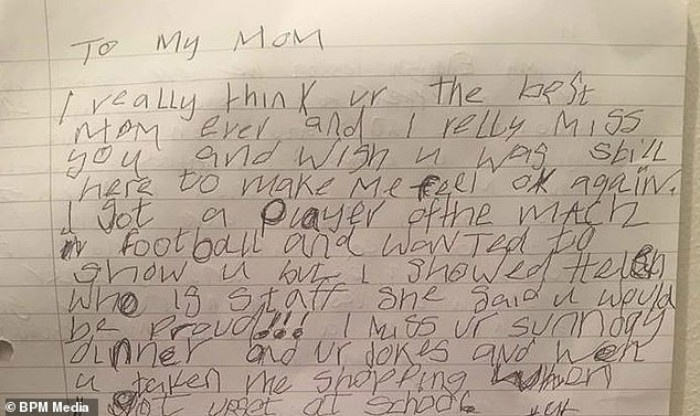 To My MOM
I really think ur the best
MOM ever and I relly miss
you and wish u was still
here to make me feel ok again.
I got a Player ofthe MACH
in football and wanted to
show u but I showed Helen
who is staff she said u would
be proud!!! I miss ur sunnday
dinner and ur jokes and wen
u taken me shopping when
I got upset at school
BPM Media